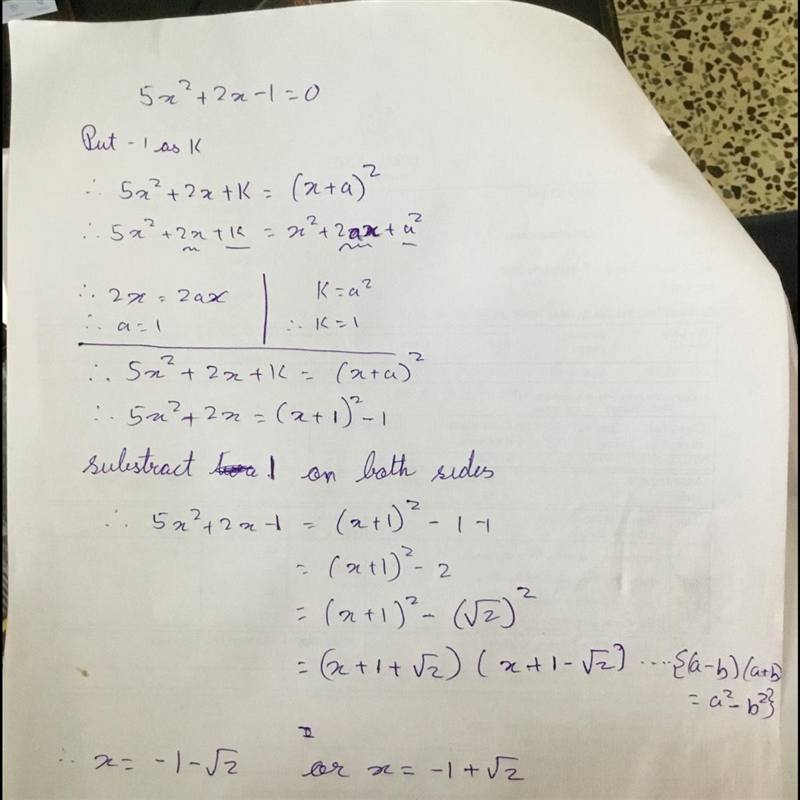 5x²+2x-1=0
Put -1 as K
∴ 5x²+2x+K = (x+a)²
∴ 5x²+2x+K = x²+2ax+a²
∴ 2x = 2ax | K=a²
∴ a=1 | ∴ K=1
∴ 5x²+2x+K = (x+a)²
∴ 5x²+2x = (x+1)²-1
substract 1 on both sides
∴ 5x²+2x-1 = (x+1)²-1-1
= (x+1)²-2
= (x+1)²-(√2)²
= (x+1+√2) (x+1-√2) ....{(a-b)(a+b)
= a²-b²}
∴ x = -1-√2 or x = -1+√2